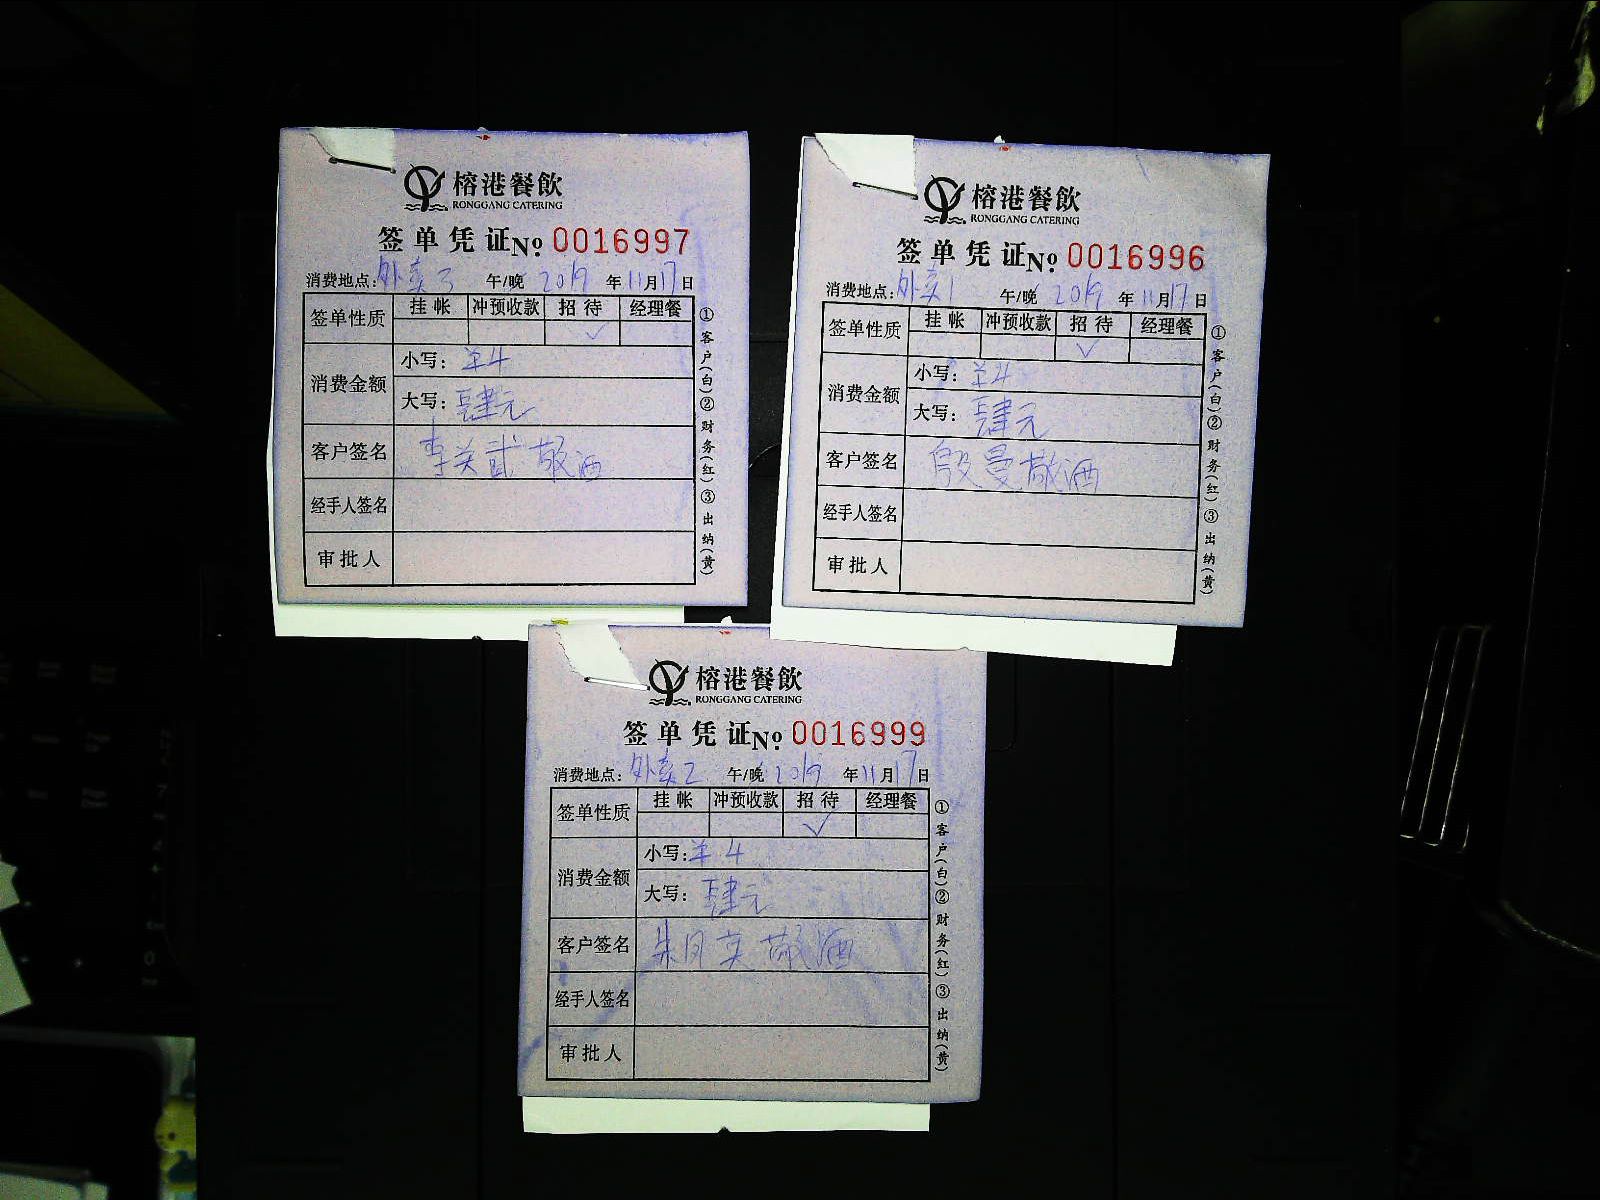 榕港餐飲
RONGGANG CATERING
签单凭证No. 0016997
消费地点:外卖3 午/晚 2019年11月17日
签单性质 挂帐 冲预收款 招待 经理餐
✓
消费金额 小写: 羊4
大写: 肆元
客户签名 李关武 敬酒
经手人签名
审批人
①客户(白)②财务(红)③出纳(黄)
榕港餐飲
RONGGANG CATERING
签单凭证No. 0016996
消费地点:外卖1 午/晚 2019年11月17日
签单性质 挂帐 冲预收款 招待 经理餐
✓
消费金额 小写: 羊4
大写: 肆元
客户签名 殷曼敬酒
经手人签名
审批人
①客户(白)②财务(红)③出纳(黄)
榕港餐飲
RONGGANG CATERING
签单凭证No. 0016999
消费地点:外卖2 午/晚 2019年11月17日
签单性质 挂帐 冲预收款 招待 经理餐
✓
消费金额 小写: 羊4
大写: 肆元
客户签名 朱月英 敬酒
经手人签名
审批人
①客户(白)②财务(红)③出纳(黄)